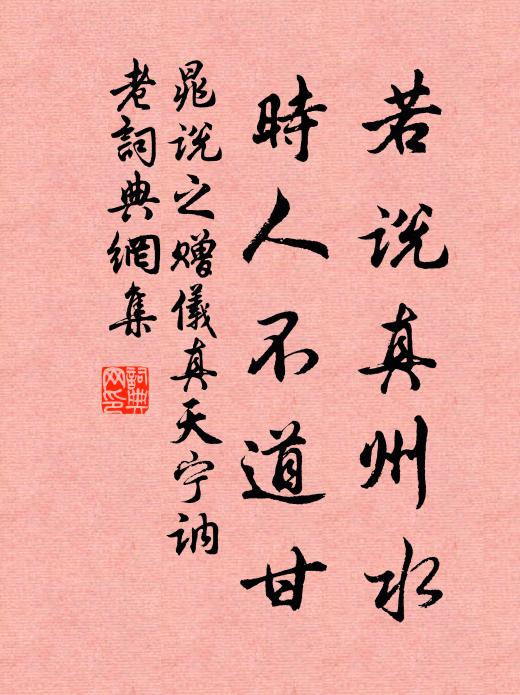 若説真州水
時人不道甘
晁説之赠儀真天宁訥
老詞典網集
詞典
网印